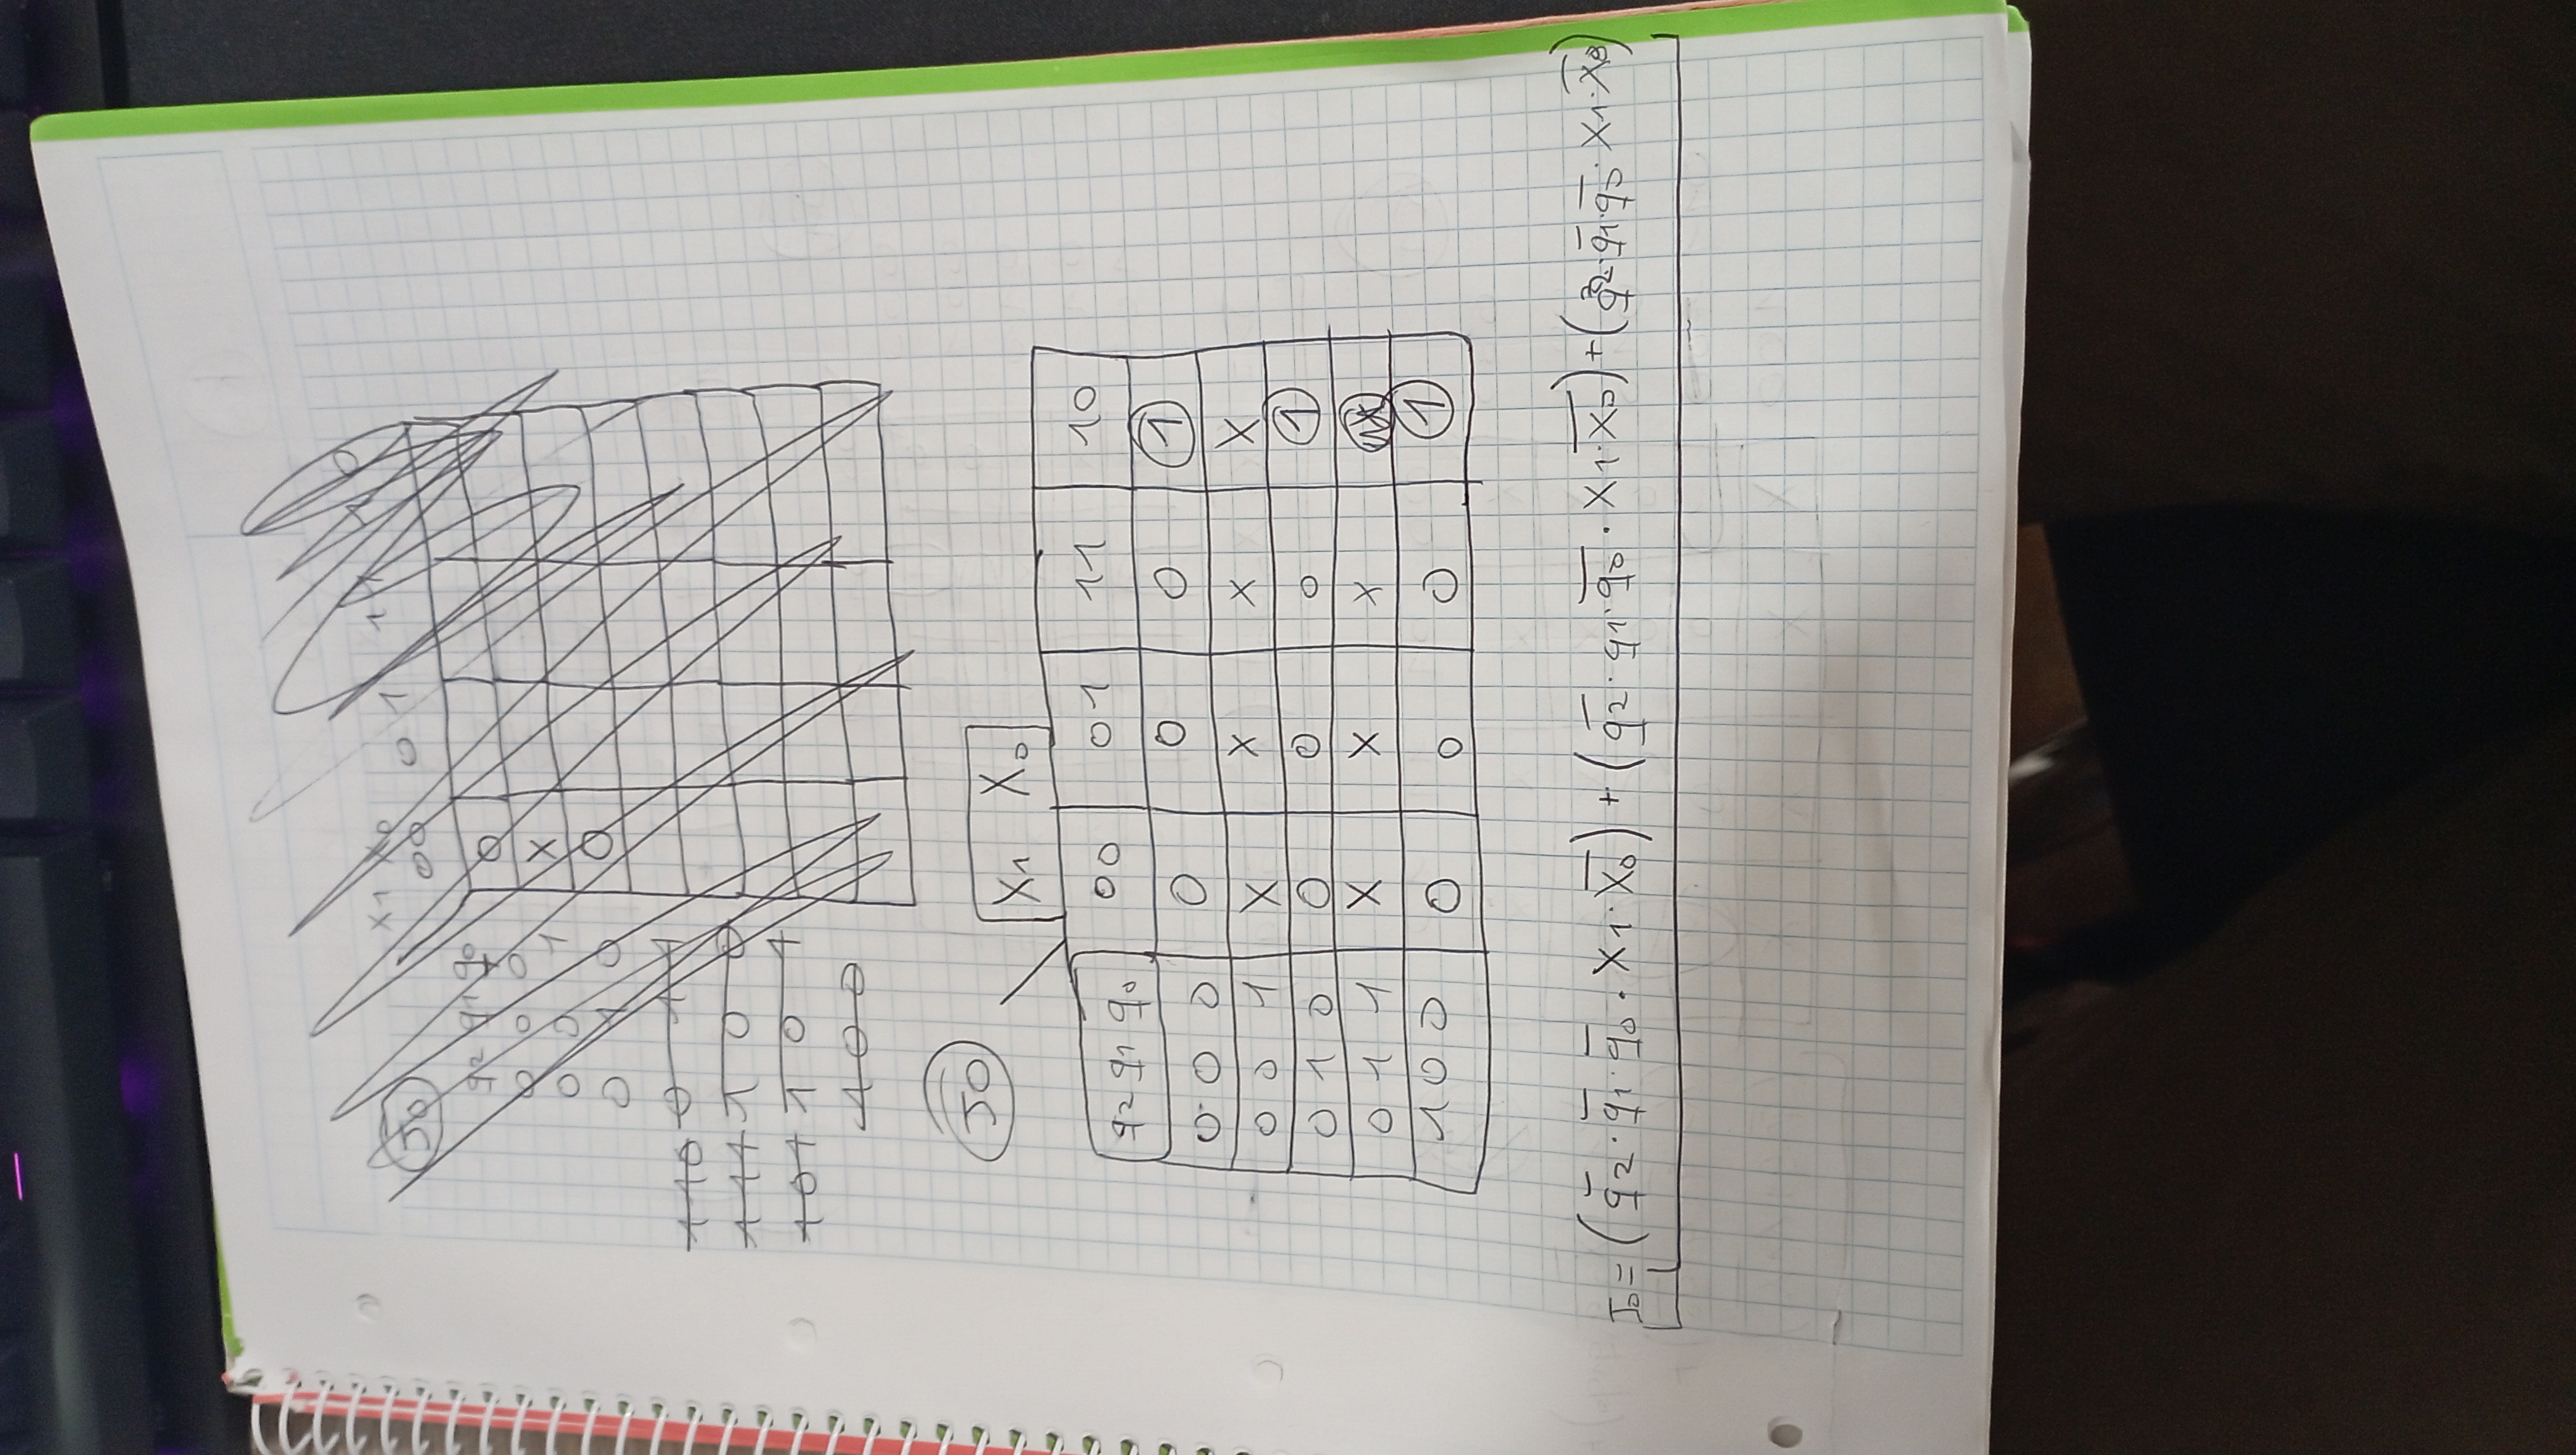 J0
X1 X0
00 01 11 10
q2 q1 q0 0
0 0 0 X
0 0 1 0
0 1 0
110 0 1 1
111 1 0 0
101 1 0 1
100
J0
X1 X0
q2 q1 q0 00 01 11 10
0 0 0 0 0 0 1
0 0 1 X X X X
0 1 0 0 0 0 1
0 1 1 X X X
1 0 0 0 0 0 1
J0 = (q̅2 · q̅1 · q̅0 · X1 · X̅0) + (q̅2 · q1 · q̅0 · X1 · X̅0) + (q2 · q̅1 · q̅0 · X1 · X̅0)